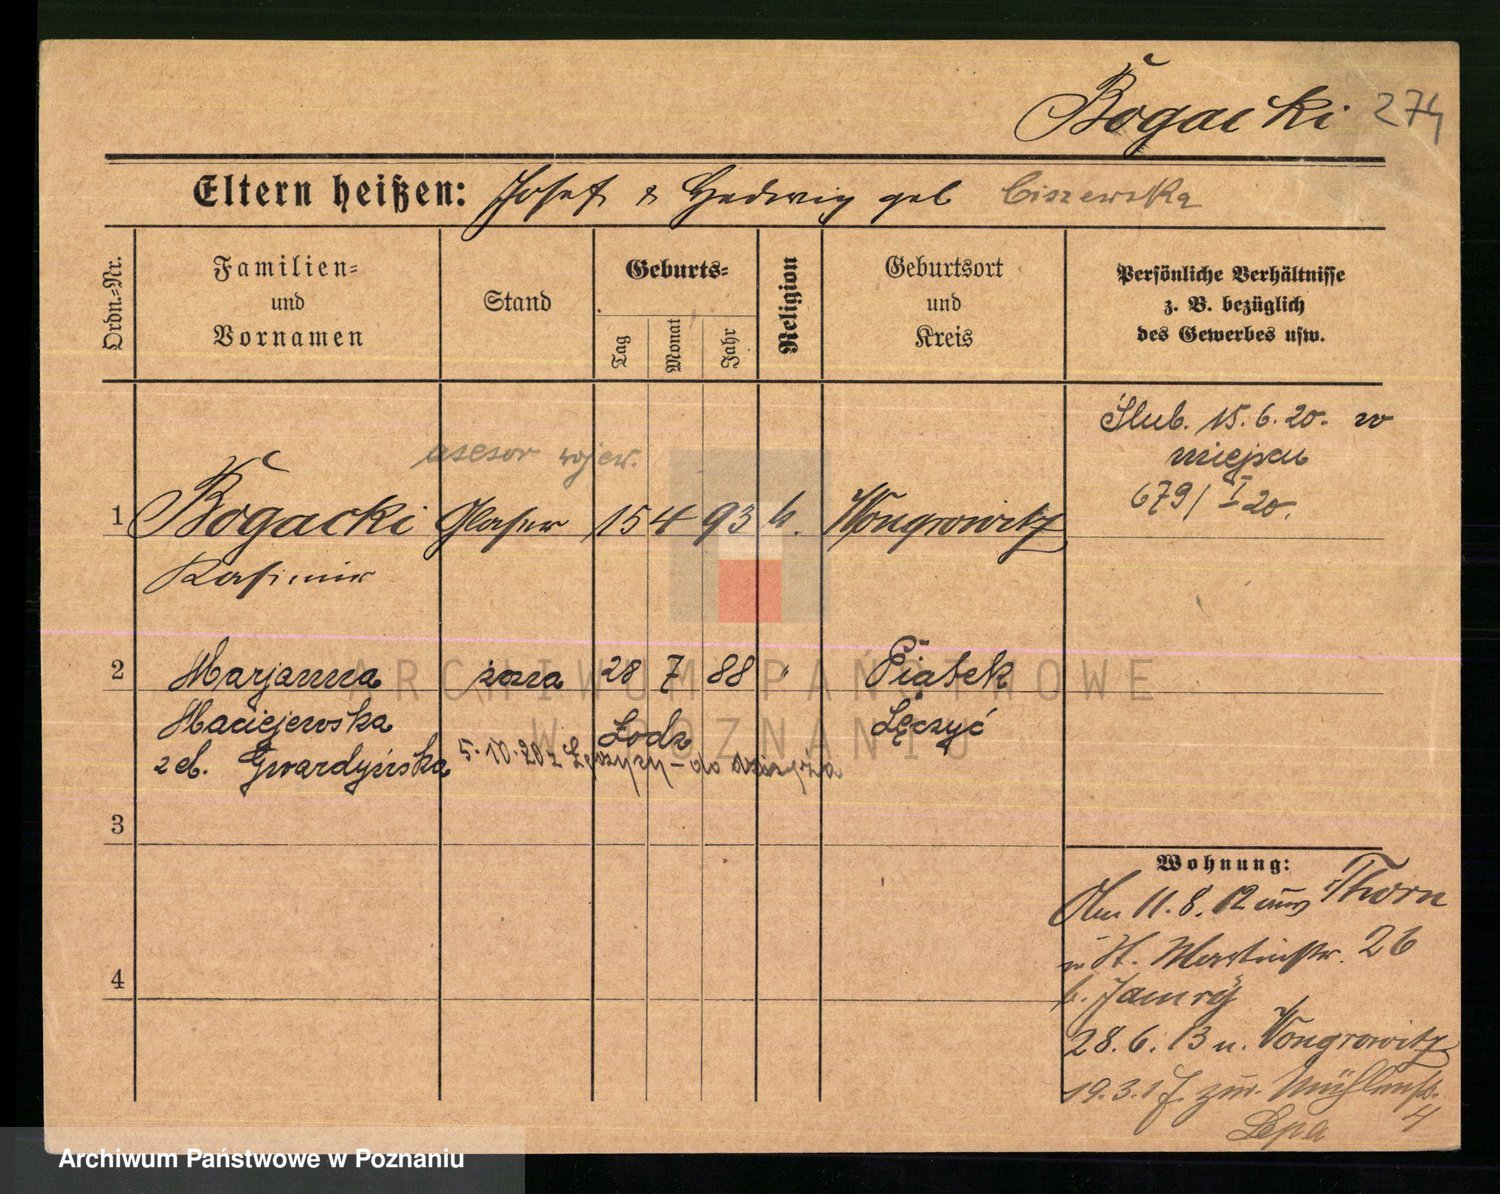 Bogacki 274
Eltern heißen: Josef & Hedwig geb Ciszewska
Ordn.-Nr.
Familien-
und
Vornamen
Stand
Geburts-
Tag
Monat
Jahr
Religion
Geburtsort
und
Kreis
Persönliche Verhältnisse
z. B. bezüglich
des Gewerbes usw.
Ślub. 15.6.20. w
miejscu
679/I 20.
asesor wojew.
1 Bogacki Glaser 15 4 93 k. Wongrowitz
Kasimir
2 Marjanna żona 28 7 88 " Piatek
Maciejewska Łodz Łęczyć
z d. Gwardyńska 5.10.20 z Łęczycy - do
3
4
Wohnung:
Am 11.8.12 aus Thorn
n St. Martinstr. 26
b. Jamry
28.6.13 n. Wongrowitz
19.3.17 zur. Mühlenstr.
4
Lepa
ARCHIWUM PAŃSTWOWE
W POZNANIU
Archiwum Państwowe w Poznaniu